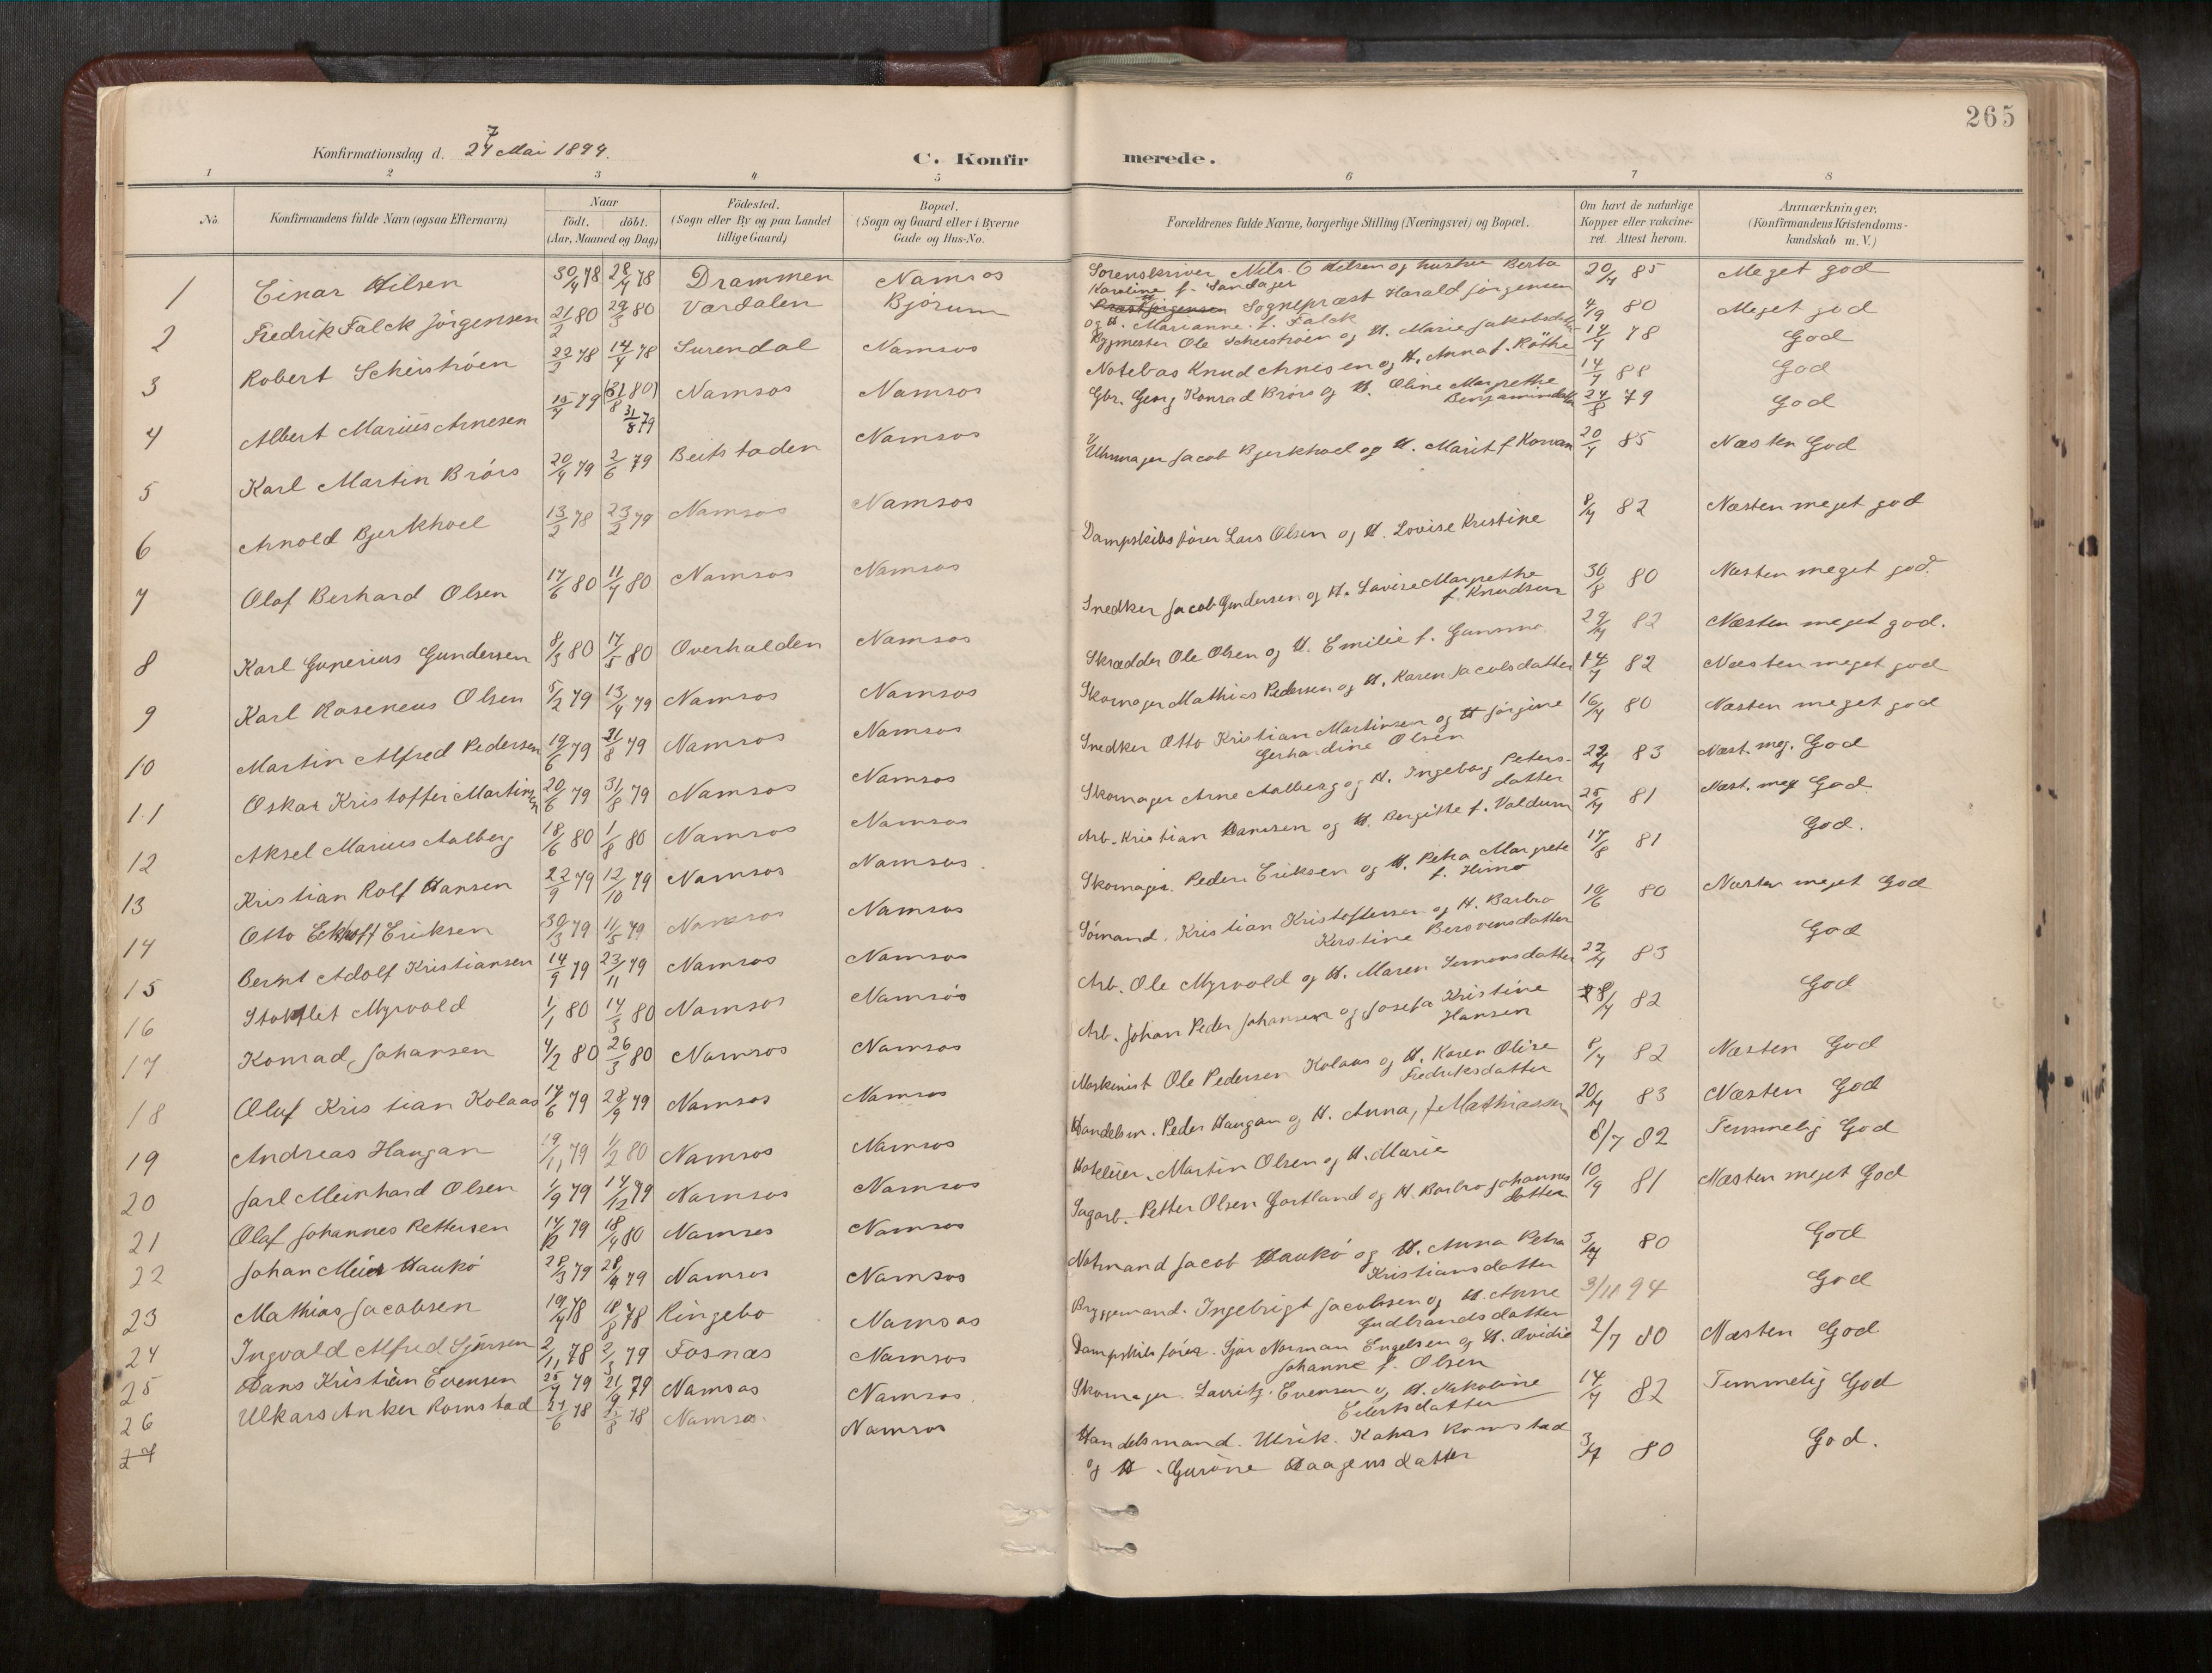 265
Konfirmationsdag d. 27 Mai 1894.
C. Konfirmerede.
1 2 3 4 5 6 7 8
No.
Konfirmandens fulde Navn (ogsaa Efternavn)
Naar
födt. döbt.
(Aar, Maaned og Dag)
Födested.
(Sogn eller By og paa Landet
tillige Gaard)
Bopæl.
(Sogn og Gaard eller i Byerne
Gade og Hus-No.
Forældrenes fulde Navne, borgerlige Stilling (Næringsvei) og Bopæl.
Om havt de naturlige
Kopper eller vakcine-
ret. Attest herom.
Anmærkninger.
(Konfirmandens Kristendoms-
kundskab m. V.)
1 Einar Hilsen 30/4 78 28/7 78 Drammen Namsos
Sorenskriver Nils O Hilsen og hustru Berta
Karoline f. Sandager
20/7 85 Meget god
2 Fredrik Falck Jörgensen 21/2 80 29/3 80 Værdalen Bjørum
Sognepræst Harald Jörgensen
og H. Marianne f. Falck
4/9 80 Meget god
3 Robert Scheiströen 22/2 78 14/4 78 Surendal Namsos
Bygmester Ole Scheiströen og H. Marie Jakobsdatter
14/7 78 God
4 Albert Marius Arnesen 15/7 79 (31/8 80) 31/8 79 Namsos Namsos
Notebas Knud Arnesen og H. Anna f. Röthe
14/7 88 God
5 Karl Martin Brörs 20/4 79 2/6 79 Beitstaden Namsos
Gbr. Georg Konrad Brörs og H. Oline Margrethe
Benjaminsdatter
24/8 79 God
6 Arnold Bjerkhoel 13/2 78 23/2 79 Namsos Namsos
Uhrmager Jacob Bjerkhoel og H. Marit f Korvan
20/7 85 Næsten God
7 Olaf Berhard Olsen 17/6 80 11/7 80 Namsos Namsos
Dampskibsfører Lars Olsen og H. Lovise Kristine
8/7 82 Næsten meget god
8 Karl Gunerius Gundersen 8/3 80 17/5 80 Overhalden Namsos
Snedker Jacob Gundersen og H. Lovise Margrethe
f. Knudsen
30/8 80 Næsten meget god.
9 Karl Roseneus Olsen 5/2 79 13/4 79 Namsos Namsos
Skrædder Ole Olsen og H. Emilie f.
29/7 82 Næsten meget god.
10 Martin Alfred Pedersen 19/6 79 31/8 79 Namsos Namsos
Skomager Mathias Pedersen og H. Karen Jacobsdatter
14/7 82 Næsten meget god
11 Oskar Kristoffer Martinsen 20/6 79 31/8 79 Namsos Namsos
Snedker Otto Kristian Martinsen og H Jörgine
Gerhardine Olsen
16/7 80 Næsten meget god
12 Aksel Marius Aalberg 18/6 80 1/8 80 Namsos Namsos
Skomager Arne Aalberg og H. Ingeborg Peters-
datter
22/7 83 Næst. meg. God
13 Kristian Rolf Hansen 22/9 79 12/10 79 Namsos Namsos
Arb. Kristian Hansen og H. Bergitte f. Valdum
25/7 81 Næst. meg God.
14 Otto Eckhoff Eriksen 30/3 79 11/5 79 Namsos Namsos
Skomager. Peder Eriksen og H. Petra Margrete
f. Himo
17/8 81 God.
15 Bernt Adolf Kristiansen 14/9 79 23/11 79 Namsos Namsos
Sömand. Kristian Kristoffersen og H. Barbro
Kerstine Bersvensdatter
19/6 80 Næsten meget God
16 Myrvold 1/1 80 14/3 80 Namsos Namsos
Arb. Ole Myrvold og H. Maren Simonsdatter
22/7 83 God
17 Konrad Johansen 4/2 80 26/3 80 Namsos Namsos
Arb. Johan Peder Johansen og Josefa Kristine
Hansen
8/7 82 God
18 Oluf Kristian Kolaas 14/6 79 28/9 79 Namsos Namsos
Maskinist Ole Pedersen Kolaas og H. Karen Olise
Fredriksdatter
8/7 82 Næsten God
19 Andreas Haugan 19/11 79 1/2 80 Namsos Namsos
Handelsm. Peder Haugan og H. Anna, f Mathiassen
20/7 83 Næsten God
20 Jarl Meinhard Olsen 1/9 79 14/12 79 Namsos Namsos
Hoteleier. Martin Olsen og H. Marie
8/7 82 Temmelig God
21 Olaf Johannes Pettersen 14/12 79 18/4 80 Namsos Namsos
Sagarb. Petter Olsen Gartland og H. Barbro Johannes
datter
10/9 81 Næsten meget God
22 Johan Meier Haukö 28/3 79 28/9 79 Namsos Namsos
Notmand Jacob Haukö og H. Anna Petra
Kristiansdatter
5/7 80 God
23 Mathias Jacobsen 19/7 78 18/8 78 Ringebo Namsos
Bryggemand. Ingebrigt Jacobsen og H. Anne
Gudbrandsdatter
3/11 94 God
24 Ingvald Alfred Sjursen 2/11 78 2/3 79 Fosnæs Namsos
Dampskibsfører. Sjur Norman Engelsen og H. Ovidie
Johanne f. Olsen
2/7 80 Næsten God
25 Hans Kristian Evensen 25/7 79 21/9 79 Namsos Namsos
Skomager Lavritz. Evensen og H. Nikoline
Edertsdatter
14/7 82 Temmelig God
26 Ulkars Anker Romstad 27/6 78 25/8 78 Namsos Namsos
Handelsmand. Ulrik. Kahrs Romstad
og H. Gurine Haagensdatter
3/7 80 God.
27